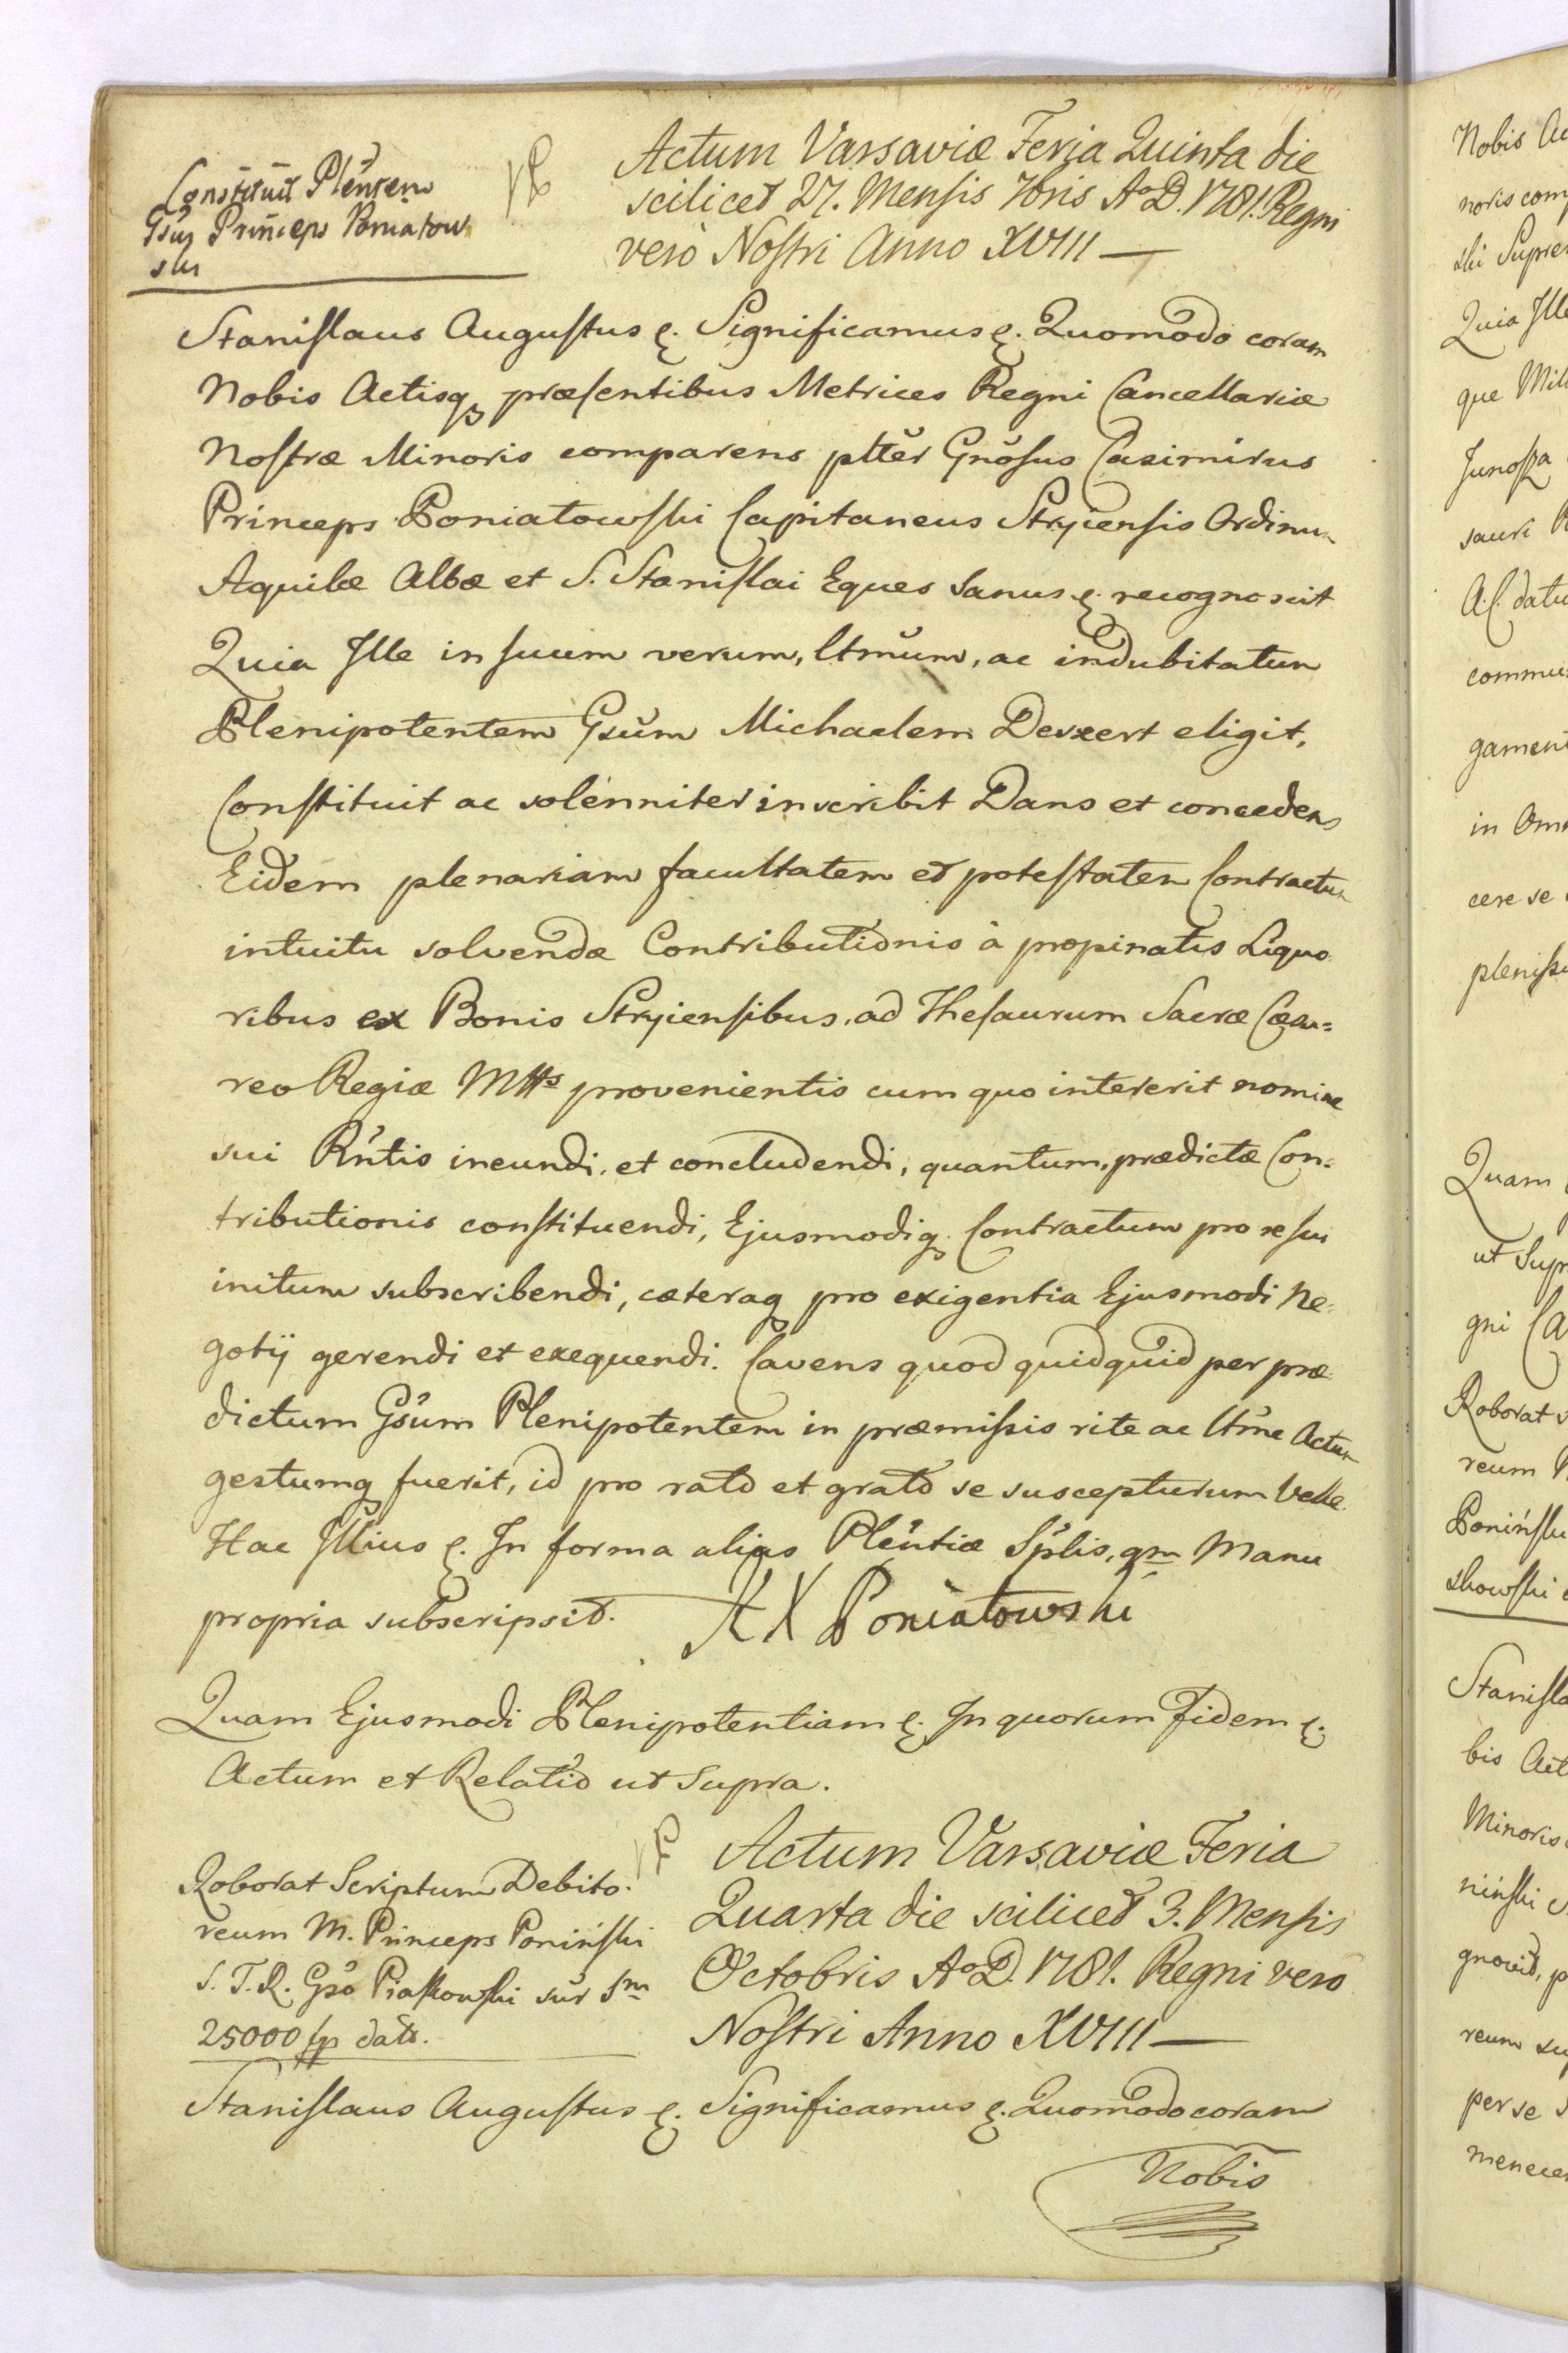 Constituit Plenten
Gsus Princeps Poniatow
ski
Actum Varsaviæ Feria Quinta die
scilicet 27. Mensis 7bris A°D. 1781. Regni
verò Nostri Anno XVIII —
Stanislaus Augustus &. Significamus &. Quomodo coram
Nobis Actisq præsentibus Metrices Regni Cancellariæ
Nostræ Minoris comparens pltter Gnosus Casimirus
Princeps Poniatowski Capitaneus Stryiensis Ordinum
Aquilæ Albæ et S. Stanislai Eques Sanus &. recognoscit
Quia Ille in suum verum, ltmum, ac indubitatum
Plenipotentem Gsum Michaelem Dexert eligit,
Constituit ac solenniter inscribit Dans et concedens
Eidem plenariam facultatem et potestatem Contractum
intuitu solvendæ Contributionis à propinatis Liquo
ribus ex Bonis Stryiensibus, ad Thesaurum Sacræ Cæsa=
reo Regiæ Mtts provenientis cum quo intererit nomine
sui Rntis ineundi, et concludendi, quantum, prædictæ Con=
tributionis constituendi, Ejusmodiq. Contractum pro se sui
initum subscribendi, cæteraq pro exigentia Ejusmodi Ne=
gotij gerendi et exequendi. Cavens quod quidquid per præ
dictum Gsum Plenipotentem in præmissis rite ac ltme Actum
gestumq fuerit, id pro rato et grato se suscepturum Velle.
Hac Illius &. In forma alias Plentiæ Splis, qm Manu
propria subscripsit. K X Poniatowski
Quam Ejusmodi Plenipotentiam &. In quorum Fidem &.
Actum et Relatio ut Supra.
Roborat Scriptum Debito.
reum M. Princeps Poniński
S. T. R. Gso Piaskowski sur Sm
25000 fp datt.
Actum Varsaviæ Feria
Quarta die scilicet 3. Mensis
Octobris A°D. 1781. Regni vero
Nostri Anno XVIII —
Stanislaus Augustus &. Significamus &. Quomodo coram
Nobis
Nobis Ac
noris com
ski Suprem
Quia Ille
que Mil
Junosza
sauri R
A.C. datu
commu
gament
in Omn
cere se
plenissi
Quam
ut Supr
gni Ca
Roborat
reum
Ponińsk
skowski
Stanisla
bis Act
Minoris
niński
gnovit, p
reum su
per se